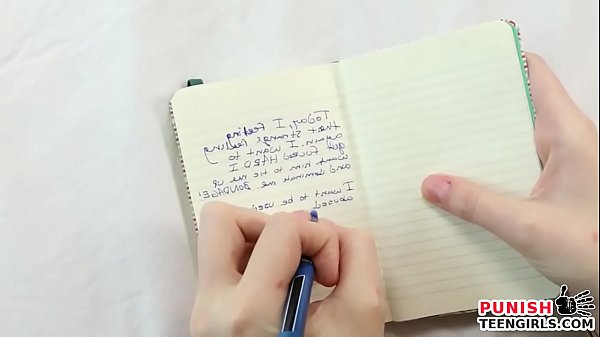 Today, I Feeling
that strange Feeling
again. I want to
get fucked HARD I
want him to tie me up
and dominate me BONDAGE!
I want to be used
abused
PUNISH
TEENGIRLS.COM